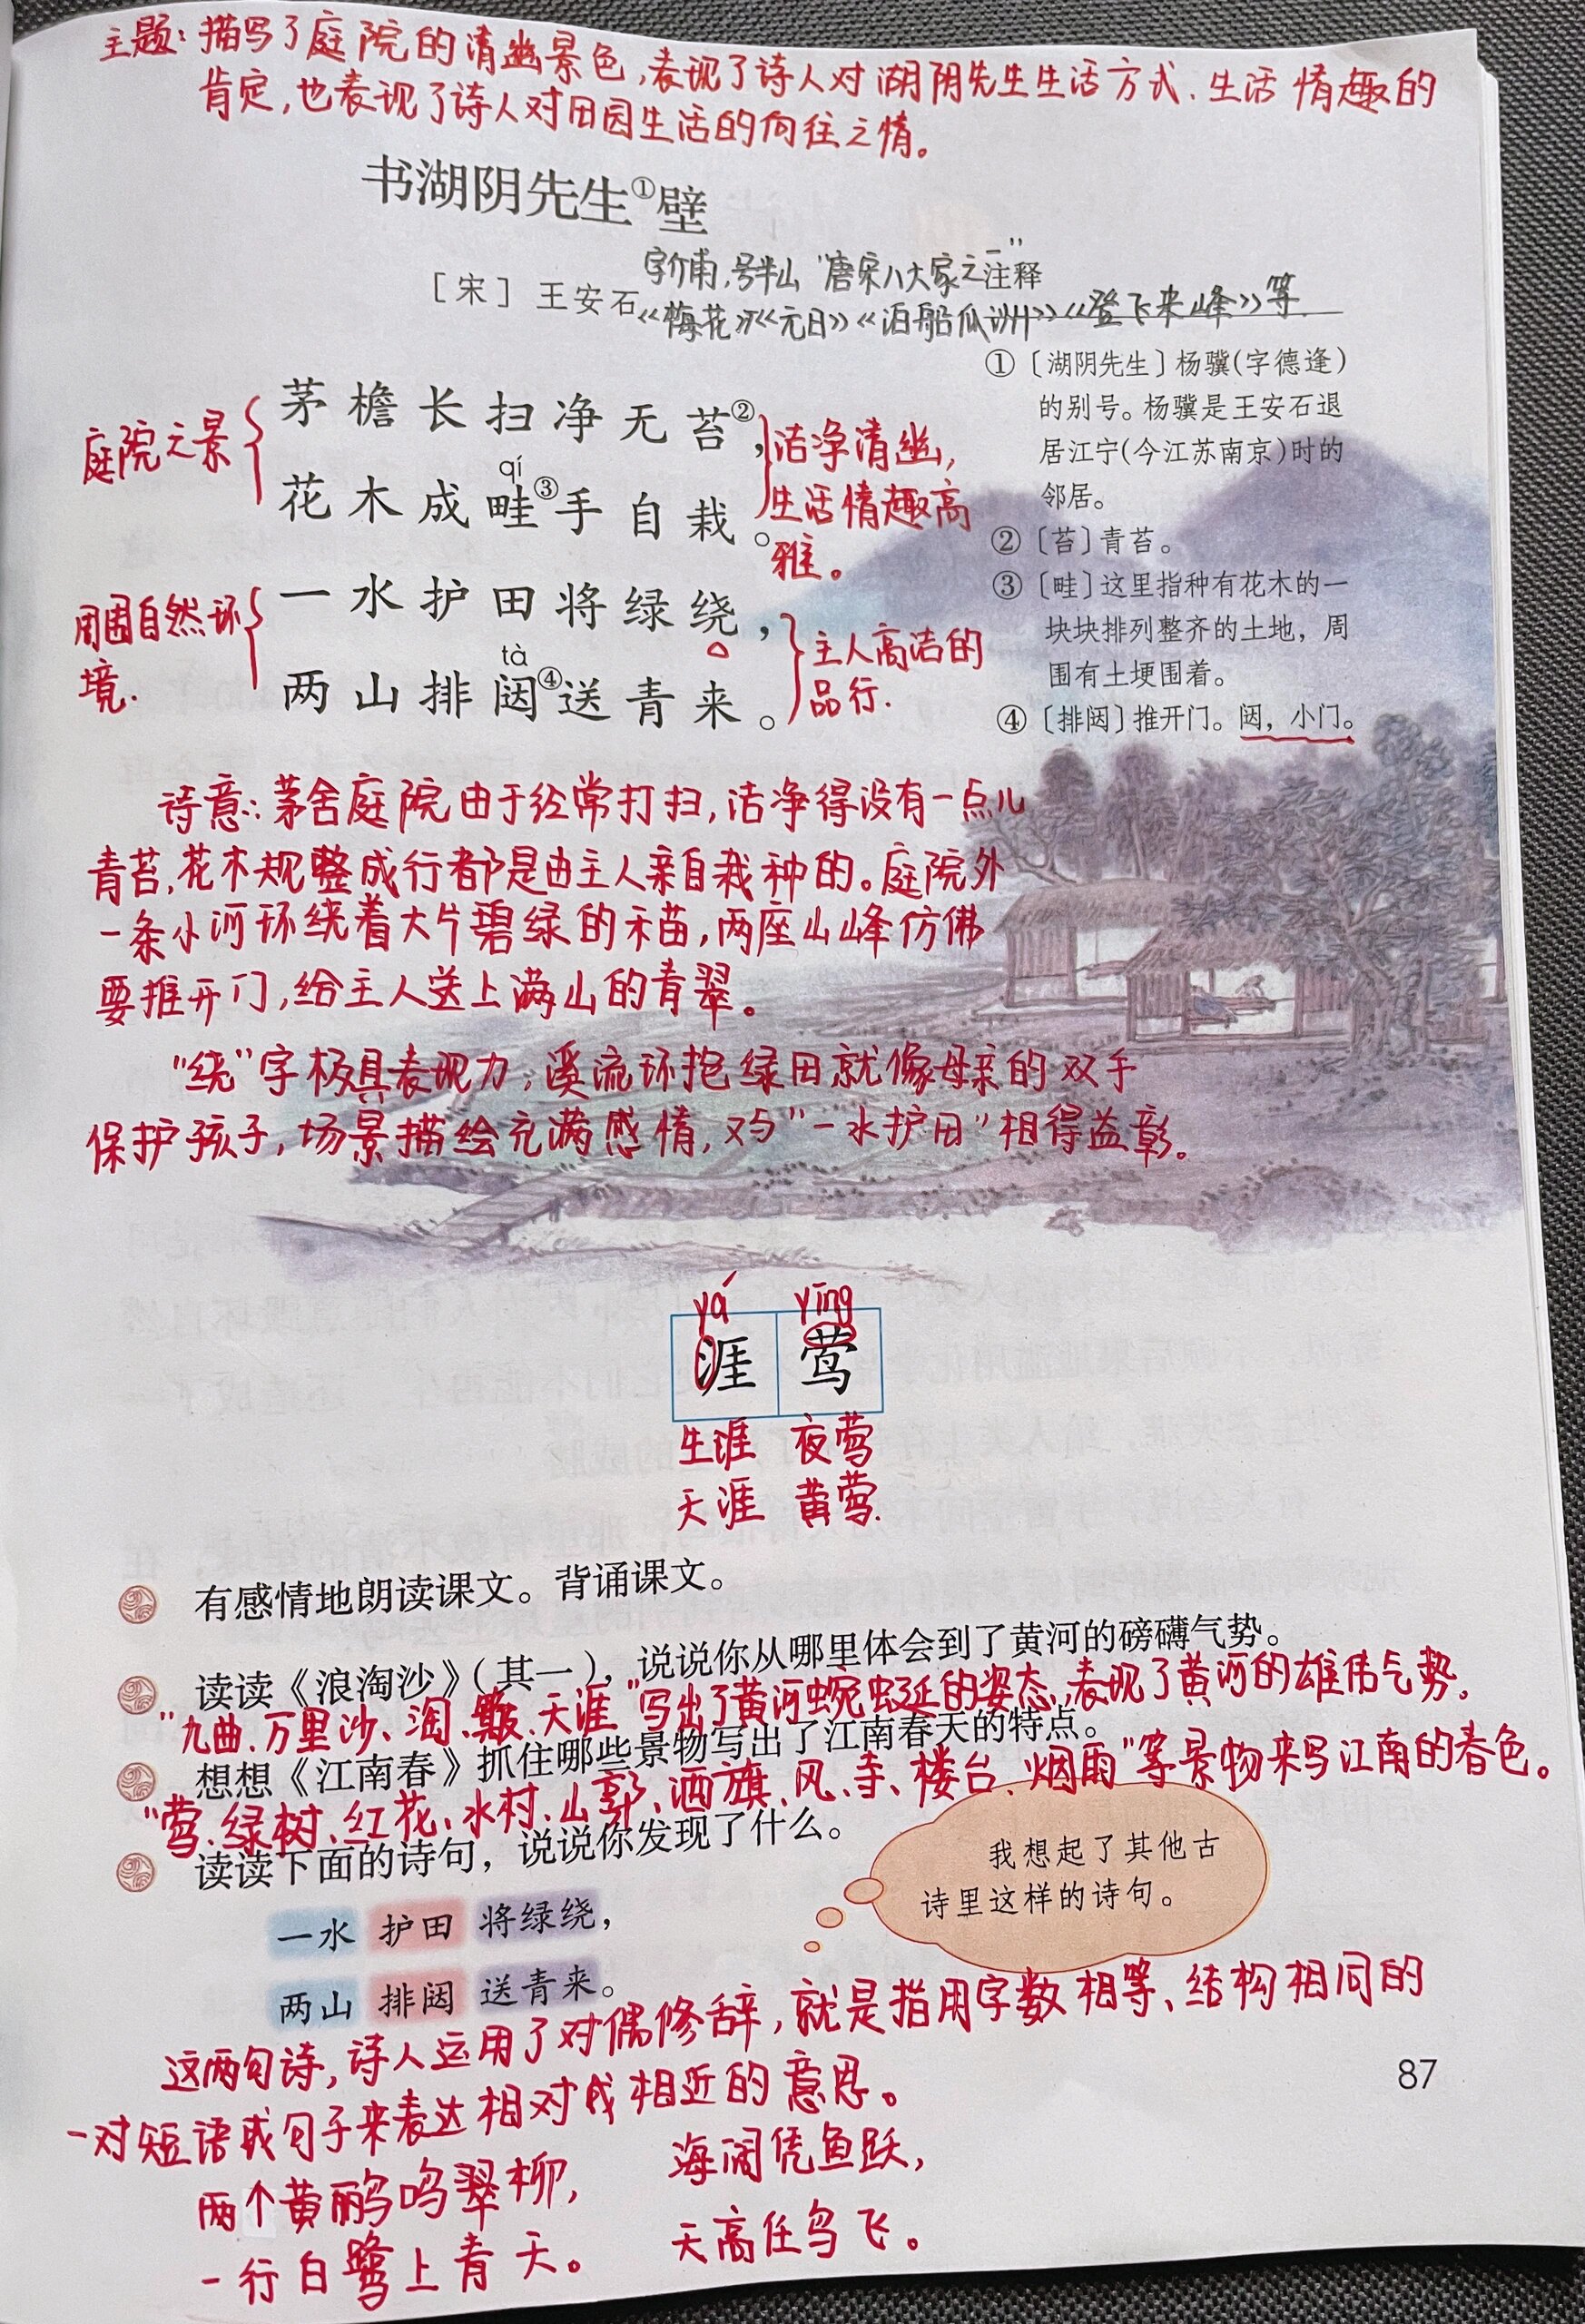 主题：描写了庭院的清幽景色，表现了诗人对湖阴先生生活方式、生活情趣的
肯定，也表现了诗人对田园生活的向往之情。
书湖阴先生①壁
［宋］王安石
字介甫，号半山 “唐宋八大家之一”
《梅花》《元日》《泊船瓜洲》《登飞来峰》等
注释
①〔湖阴先生〕杨骥(字德逢)
的别号。杨骥是王安石退
居江宁(今江苏南京)时的
邻居。
②〔苔〕青苔。
③〔畦〕这里指种有花木的一
块块排列整齐的土地，周
围有土埂围着。
④〔排闼〕推开门。闼，小门。
庭院之景
茅檐长扫净无苔②，
qí
花木成畦③手自栽。
洁净清幽，
生活情趣高
雅。
周围自然环
境.
一水护田将绿绕，
tà
两山排闼④送青来。
主人高洁的
品行.
诗意：茅舍庭院由于经常打扫，洁净得没有一点儿
青苔，花木规整成行都是由主人亲自栽种的。庭院外
一条小河环绕着大片碧绿的禾苗，两座山峰仿佛
要推开门，给主人送上满山的青翠。
“绕”字极具表现力，溪流环抱绿田就像母亲的双手
保护孩子，场景描绘充满感情，对与“一水护田”相得益彰。
yá yīng
涯 莺
生涯 夜莺
天涯 黄莺.
有感情地朗读课文。背诵课文。
读读《浪淘沙》(其一)，说说你从哪里体会到了黄河的磅礴气势。
“九曲、万里沙、淘、簸、天涯”写出了黄河蜿蜒的姿态、表现了黄河的雄伟气势。
想想《江南春》抓住哪些景物写出了江南春天的特点。
“莺、绿树、红花、水村、山郭、酒旗、风、寺、楼台、烟雨”等景物来写江南的春色。
读读下面的诗句，说说你发现了什么。
我想起了其他古
诗里这样的诗句。
一水 护田 将绿绕，
两山 排闼 送青来。
这两句诗，诗人运用了对偶修辞，就是指用字数相等、结构相同的
一对短语或句子来表达相对或相近的意思。
87
两个黄鹂鸣翠柳，
一行白鹭上青天。
海阔凭鱼跃，
天高任鸟飞。